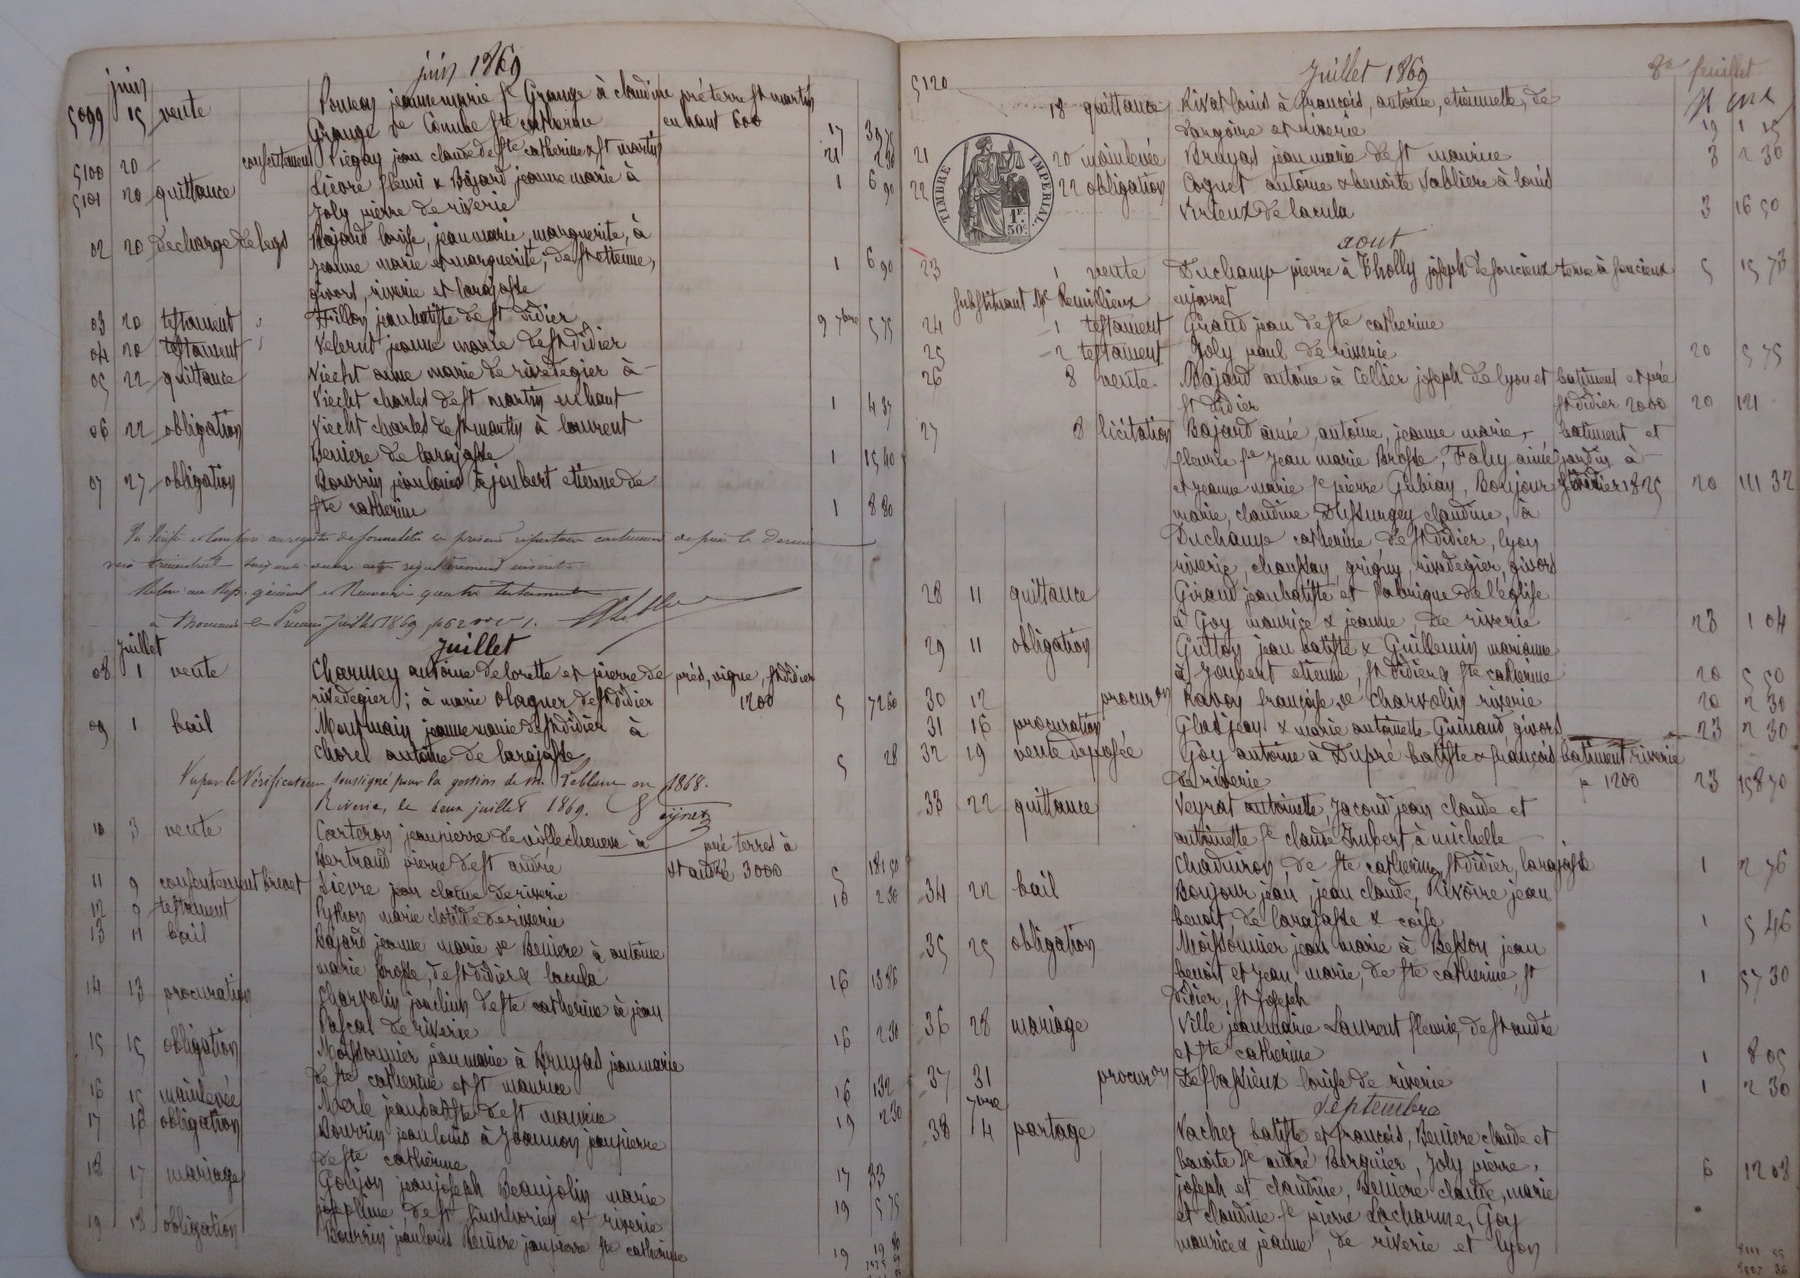 juin 1869
juin
5099 15 vente Poncon jeanne marie fe Grange à claudine pré terre st martin
Grange ve Combe ste catherine en haut 600 17 39 75
5100 20 consentement Viegay jean claude de ste catherine & st martin 21 2 30
5101 20 quittance Lièvre fleuri & Bajard jeanne marie à 1 6 90
Joly pierre de riverie
02 20 decharge de legs Bajard louise, jean marie, marguerite, à
jeanne marie et marguerite, de st etienne, 1 6 90
givors, riverie et larajasse
03 20 testament Fillon jean batiste de st didier 9 7bre 5 75
04 20 testament jeanne marie de st didier
05 22 quittance Viecht anne marie de rivedegier à
Viecht charles de st martin en haut 1 4 37
06 22 obligation Viecht charles de st martin à laurent
Beniere de larajasse 1 15 40
07 27 obligation Bourrin jean louis à joubert etienne de
ste catherine 1 8 80
Vu Vérifié et Comparé au registre de formalités le présent répertoire contenant depuis le dernier
visa trimestriel
à Mornant le Premier Juillet 1869
Juillet Juillet
08 1 vente Charmey antoine de lorette et pierre de prés, vigne, st didier
rivedegier; à marie olagner de st didier 1200 5 72 60
09 1 bail jeanne marie de st didier à
Chorel antoine de larajasse 5 28
Vu par le Vérificateur soussigné pour la gestion de M. Leblanc en 1868.
Riverie, le deux juillet 1869.
10 3 vente Carteron jean pierre de villechenève à pré terres à
Bertrand pierre de st andré st andré 3000 5 181 50
11 9 consentement brevet Lievre jean claude de riverie 10 2 30
12 9 testament Python marie clotilde de riverie
13 11 bail Bajard jeanne marie ve Beniere à antoine
marie brosse, de st didier & lacula 16 13 86
14 13 procuration Charvolin joachim de ste catherine à jean
Pascal de riverie 16 2 30
15 15 obligation Moissonnier jean marie à Bruyas jean marie
de ste catherine et st maurice 16 132
16 15 mainlevée Merle jean batiste de st maurice 19 2 30
17 16 obligation Bourrin jean louis à Joannon jean pierre
de ste catherine 17 33
18 17 mariage Goujon jean joseph Beaujolin marie
joséphine, de st simphorien et riverie 19 5 75
19 18 obligation Bourrin jean louis Beniere jean pierre ste catherine 19
Juillet 1869 8e feuillet
5120 18 quittance Rivat louis à françois, antoine, etiennette, de
dargoire et riverie 19 1 15
21 20 mainlevée Bruyas jean marie de st maurice 3 2 30
22 22 obligation Coquet antoine & benoite Vablière à louis
Virieux de lacula 3 16 50
TIMBRE IMPERIAL
1F.
50c
aout
23 1 vente Duchamp pierre à Tholly joseph de soucieux terre à soucieux 5 15 73
substituant Me Remillieux en jarret
24 1 testament Giraud jean de ste catherine
25 2 testament Joly paul de riverie 20 5 75
26 8 vente Bajard antoine à Cellier joseph de lyon et batiment et pré
st didier st didier 2000 20 121
27 8 licitation Bajard aimée, antoine, jeanne marie, batiment et
fleurie fe Jean marie Brosse, Fahy aimé jardin à
et jeanne marie fe pierre Gubian, Bonjour st didier 1825 20 111 32
marie, claudine Dussurgey claudine, à
Duchamp catherine de st didier, lyon
riverie, chaussan, grigny, rivedegier, givors
28 11 quittance Giraud jean batiste et fabrique de l'église
à Goy maurice & jeanne, de riverie 23 1 04
29 11 obligation Guttoy jean batiste & Guillemin marianne
à Joubert etienne, st didier & ste catherine 20 5 50
30 12 procuron Ravoy françoise ve Charvolin riverie 20 2 30
31 16 procuration Glas jean & marie antoinette Guinand givors 23 2 30
32 19 vente deposée Goy antoine à Dupré batiste & françois batiment riverie
de riverie p 1200 23 158 70
33 22 quittance Veyrat antoinette, Jacoud jean claude et
antoinette fe claude Imbert à michelle
Chaduiron, de ste catherine, st didier, larajasse 1 2 76
34 22 bail Bonjour jean, jean claude, Rivoire jean
benoit de larajasse & coise 1 5 46
35 25 obligation Moissonnier jean marie à Besson jean
benoit et jean marie, de ste catherine, st 1 57 30
didier, st joseph
36 28 mariage Ville jean marie & Laurent fleurie, de st andré
et ste catherine 1 8 05
37 31 procuron Desbassieux louise de riverie 1 2 30
7bre Septembre
38 4 partage Vacher batiste et françois, Beniere claude et
benoite fe andré Berguier, Joly pierre,
joseph et claudine, Beniere claude, marie 6 12 08
et claudine fe pierre Lacharme, Goy
maurice & jeanne, de riverie et lyon